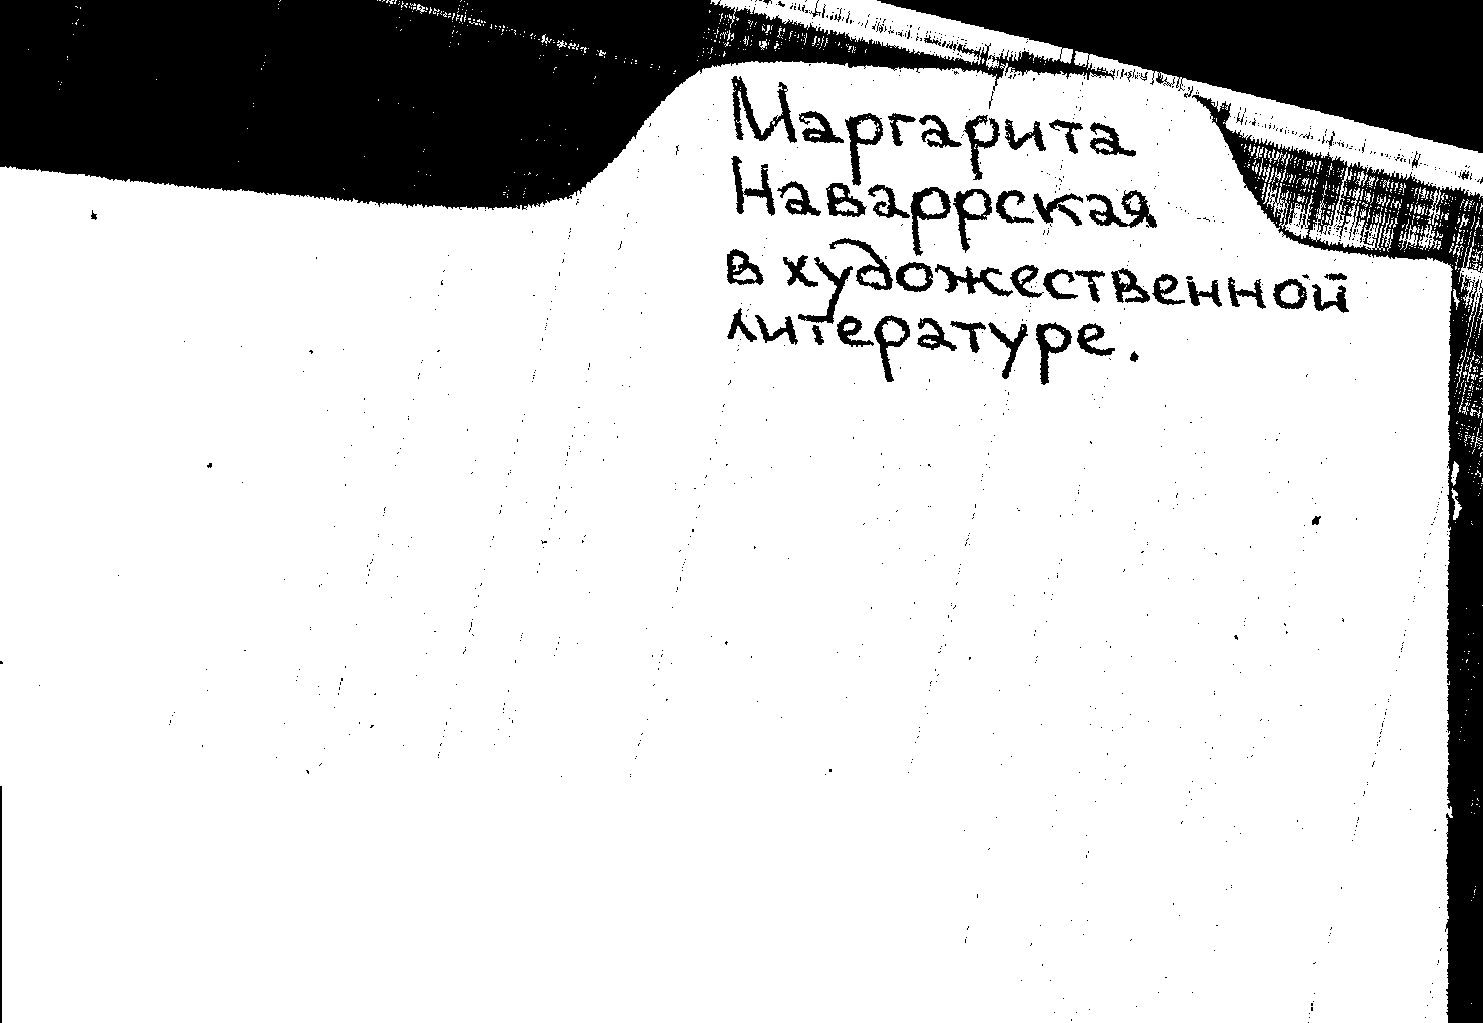 Маргарита
Наваррская
в художественной
литературе.